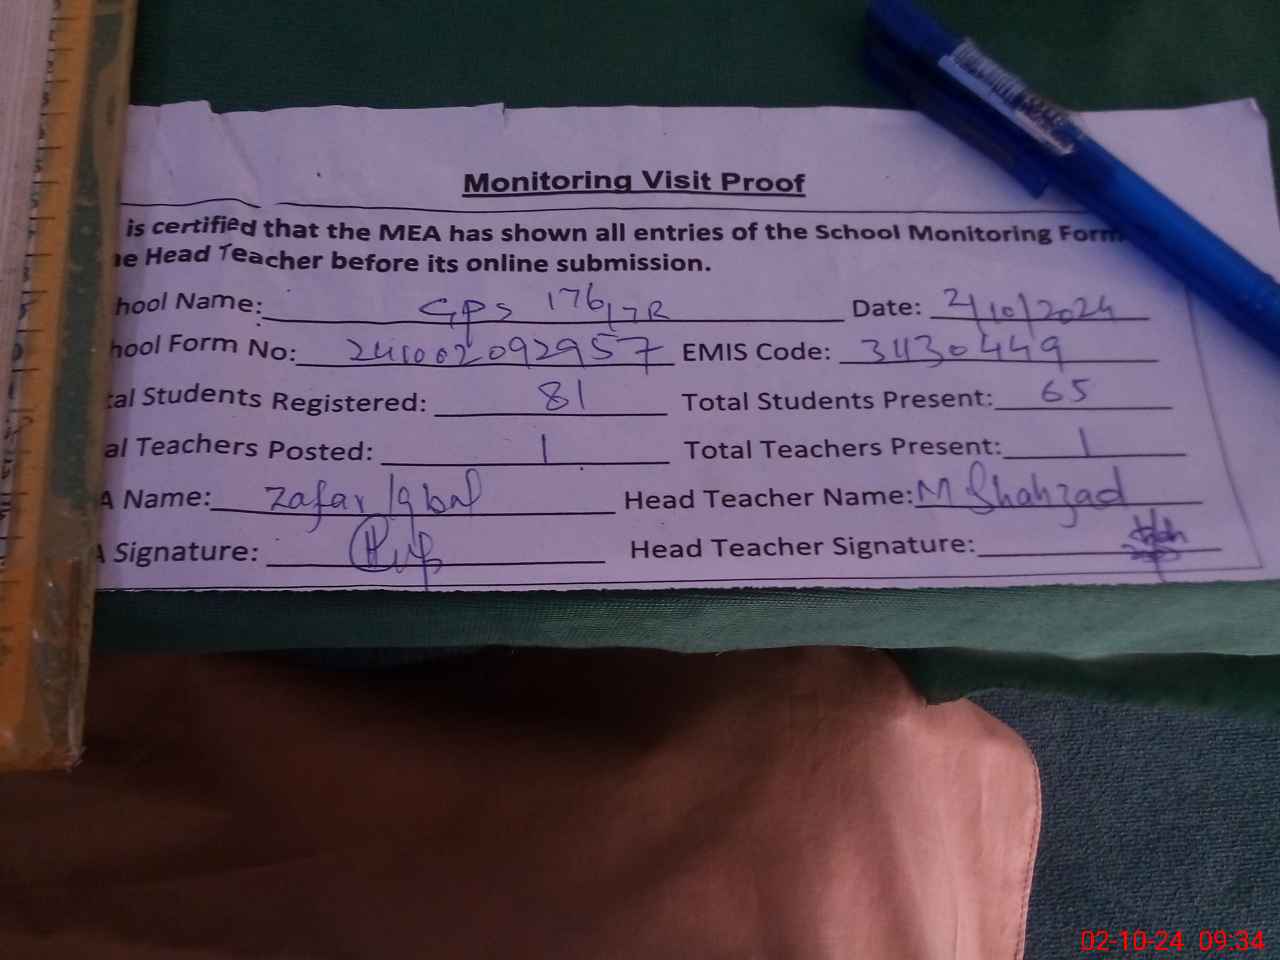 Monitoring Visit Proof
is certified that the MEA has shown all entries of the School Monitoring Form
he Head Teacher before its online submission.
hool Name: GPS 176/7R Date: 2/10/2024
hool Form No: EMIS Code: 31130449
tal Students Registered: 81 Total Students Present: 65
al Teachers Posted: 1 Total Teachers Present: 1
A Name: Zafar Iqbal Head Teacher Name: M Shahzad
A Signature: Head Teacher Signature:
02-10-24 09:34